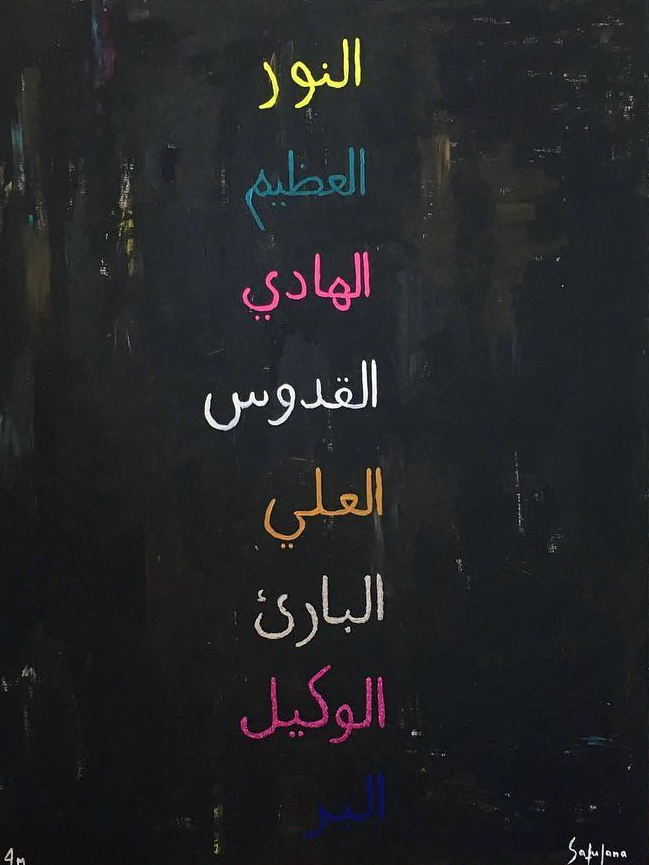 النور
العظيم
الهادي
القدوس
العلي
البارئ
الوكيل
البر
4m